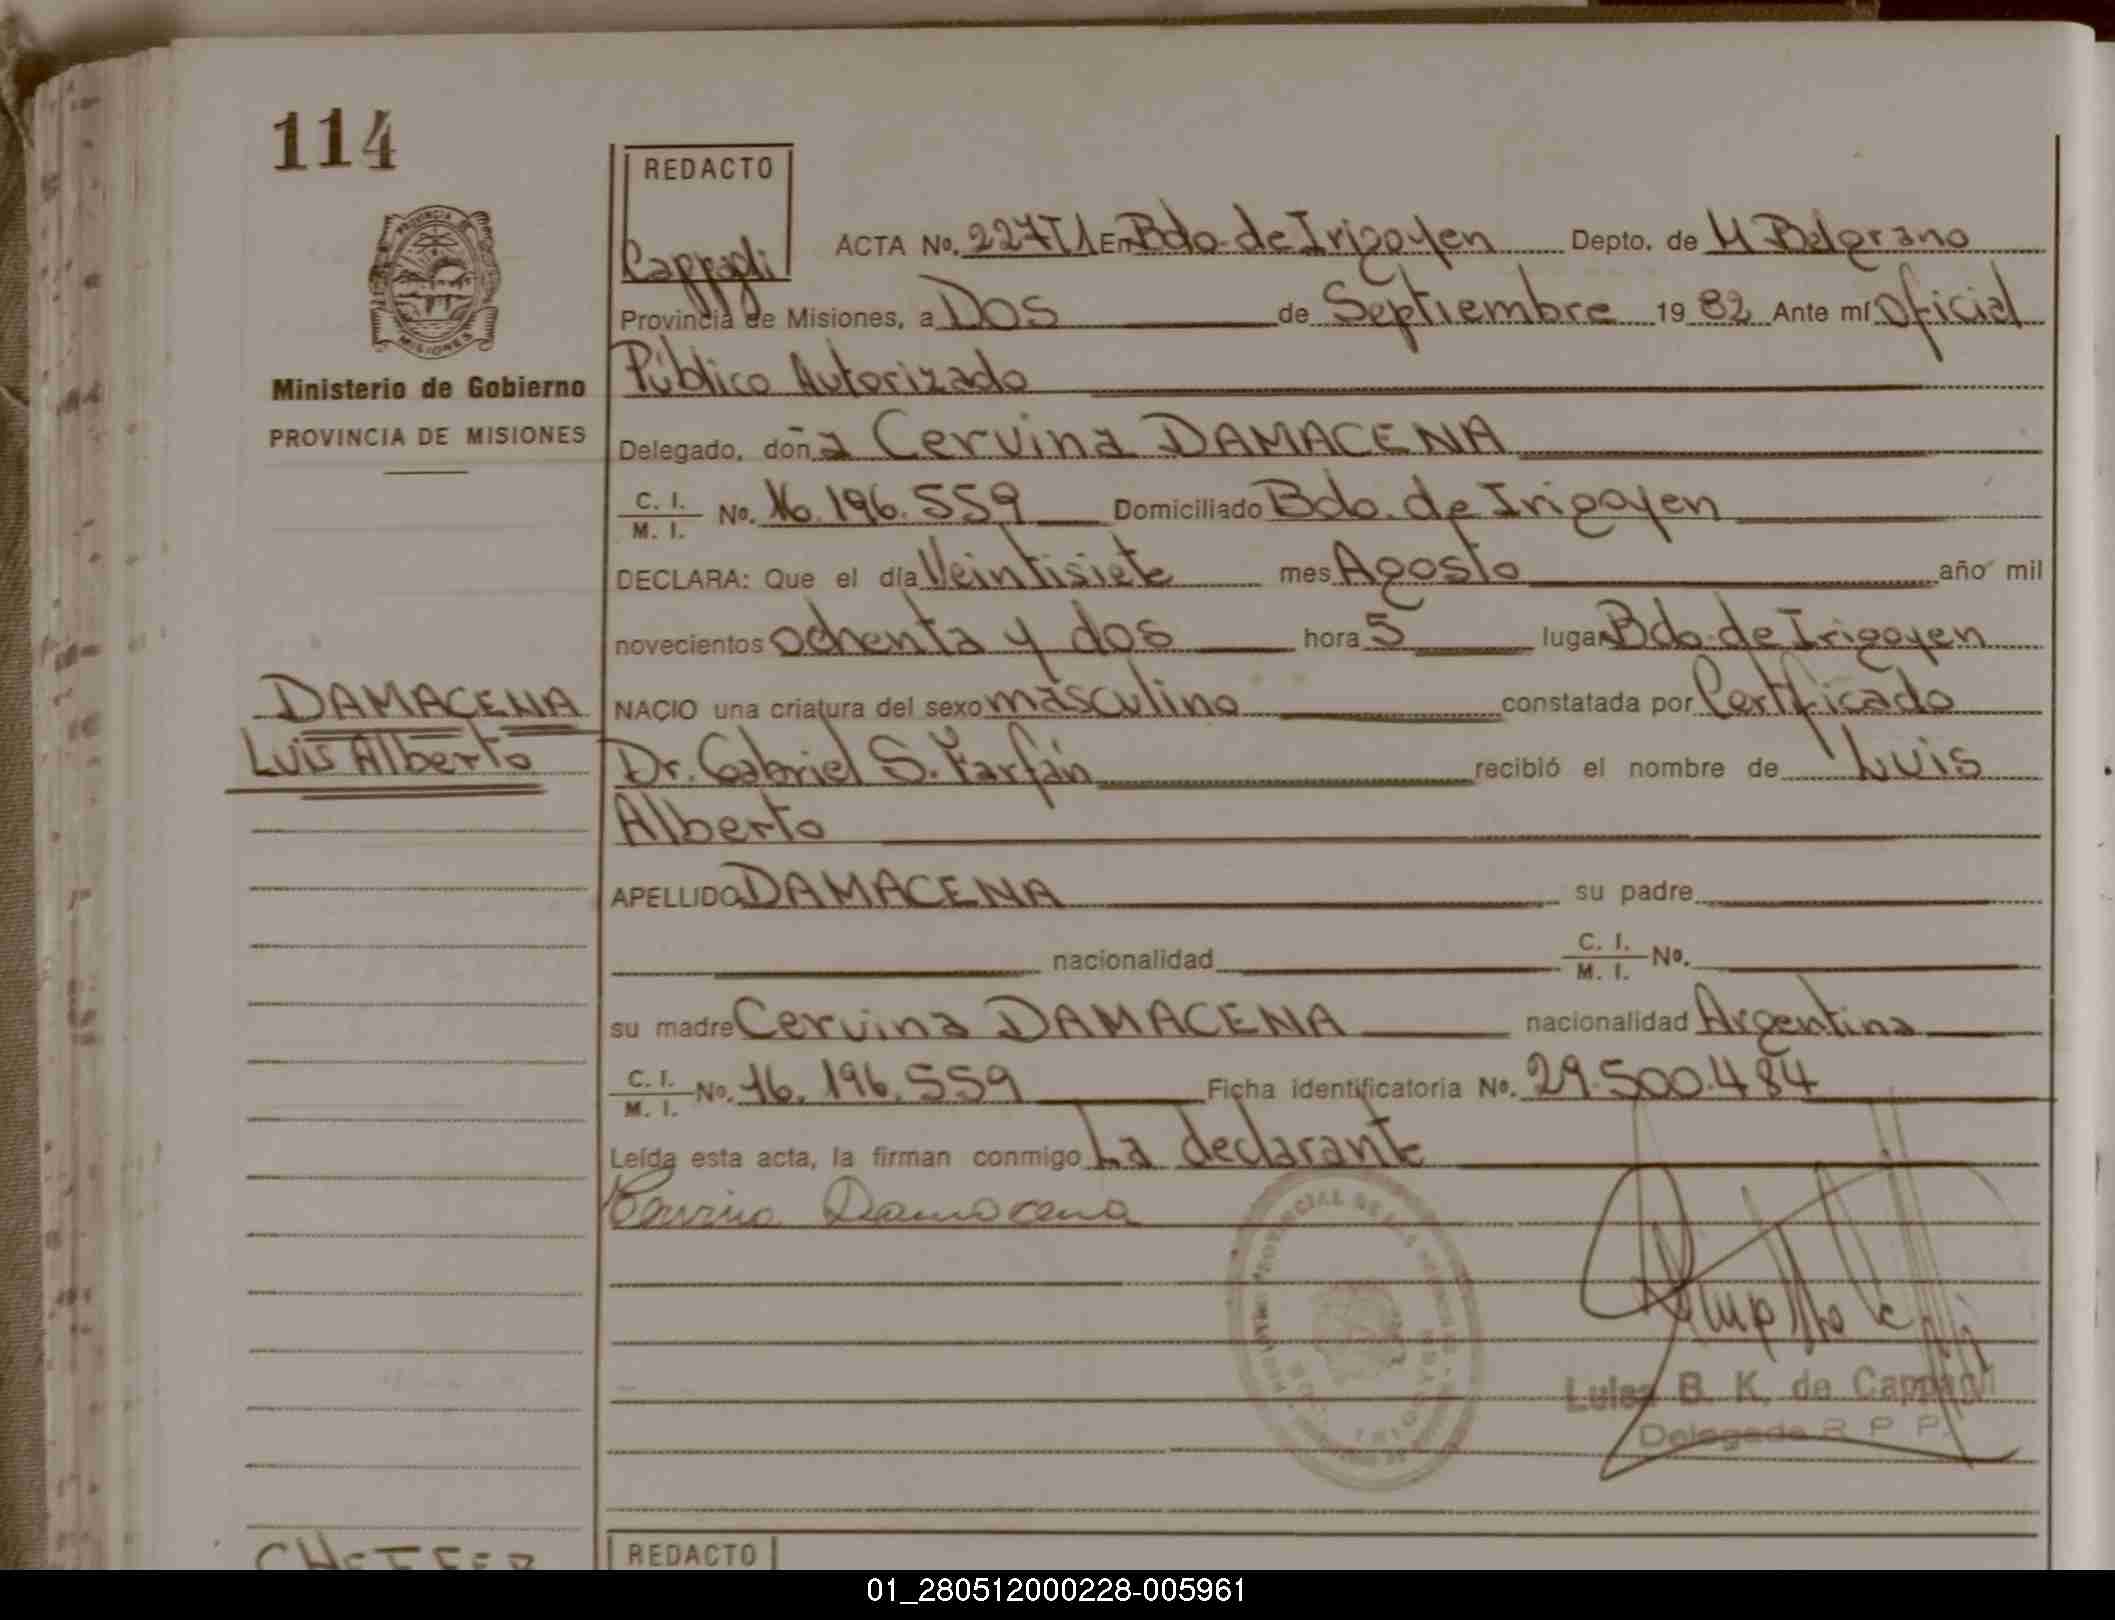 114
REDACTO
Cappagli
PROVINCIA DE
MISIONES
Ministerio de Gobierno
PROVINCIA DE MISIONES
ACTA No. 227T1 En Bdo. de Irigoyen Depto. de M Belgrano
Provincia de Misiones, a Dos de Septiembre 1982 Ante mí Oficial
Público Autorizado
Delegado, doña Cervina DAMACENA
C. I.
M. I. No. 16.196.559 Domiciliado Bdo. de Irigoyen
DECLARA: Que el día Veintisiete mes Agosto año mil
novecientos ochenta y dos hora 5 lugar Bdo. de Irigoyen
DAMACENA
Luis Alberto
NACIO una criatura del sexo masculino constatada por Certificado
Dr. Gabriel S. Farfán recibió el nombre de Luis
Alberto
APELLIDO DAMACENA su padre
nacionalidad C. I.
M. I. No.
su madre Cervina DAMACENA nacionalidad Argentina
C. I.
M. I. No. 16.196.559 Ficha identificatoria No. 29.500.484
Leída esta acta, la firman conmigo La declarante
Cervina Damacena
Luisa B. K. de Cappagli
Delegada R P P.
REDACTO
01_280512000228-005961